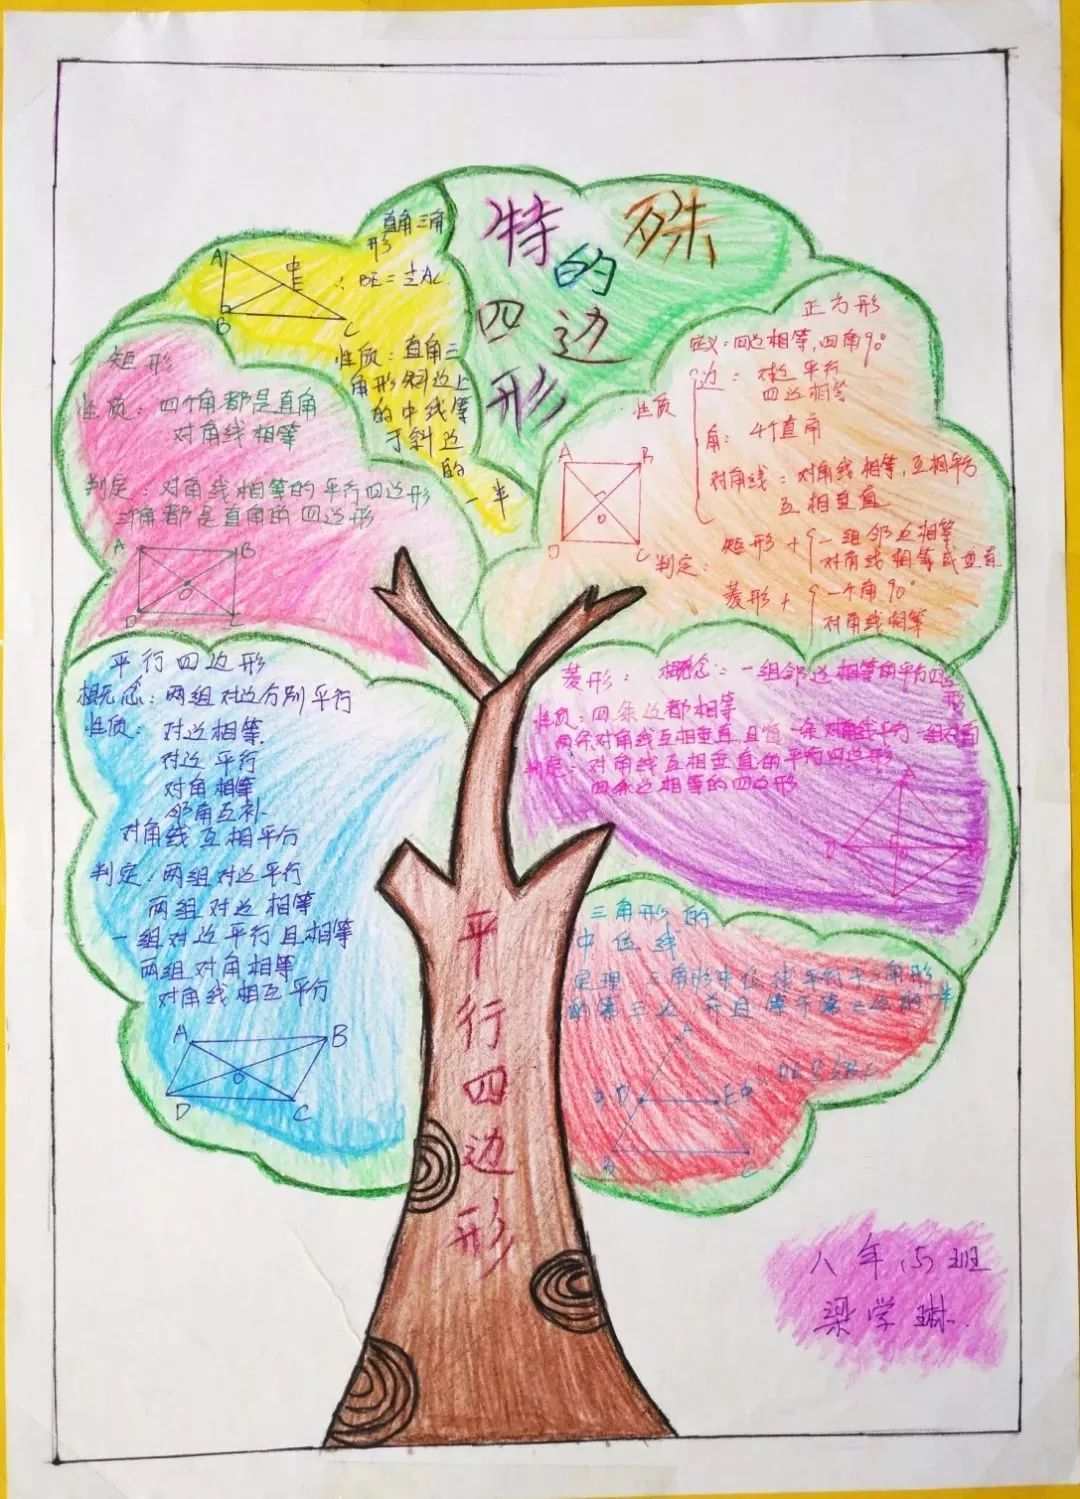 特殊
的
四边
形
直角三角
形
A
中
E
∴ BE=½AC.
B
C
性质：直角三
角形斜边上
的中线等
于斜边
的
一半
矩形
性质：四个角都是直角
对角线相等
判定：对角线相等的平行四边形
三个角都是直角的四边形
A B
O
D C
正方形
定义：四边相等，四角90°
性质
边：对边平行
四边相等
角：4个直角
对角线：对角线相等，互相平分
互相垂直
A B
O
D C
判定：
矩形＋ 一组邻边相等
对角线相等或垂直
菱形＋ 一个角90°
对角线相等
平行四边形
概念：两组对边分别平行
性质：对边相等
对边平行
对角相等
邻角互补
对角线互相平分
判定：两组对边平行
两组对边相等
一组对边平行且相等
两组对角相等
对角线相互平分
A B
O
D C
菱形：概念：一组邻边相等的平行四边
形
性质：四条边都相等
两条对角线互相垂直且每一条对角线平分一组对角
判定：对角线互相垂直的平行四边形
四条边相等的四边形
A
D
O
三角形的
中位线
定理：三角形中位线平行于三角形
的第三边，并且等于第三边的一半
A
D E中
B C
平行四边形
八年(5)班
梁学琳.